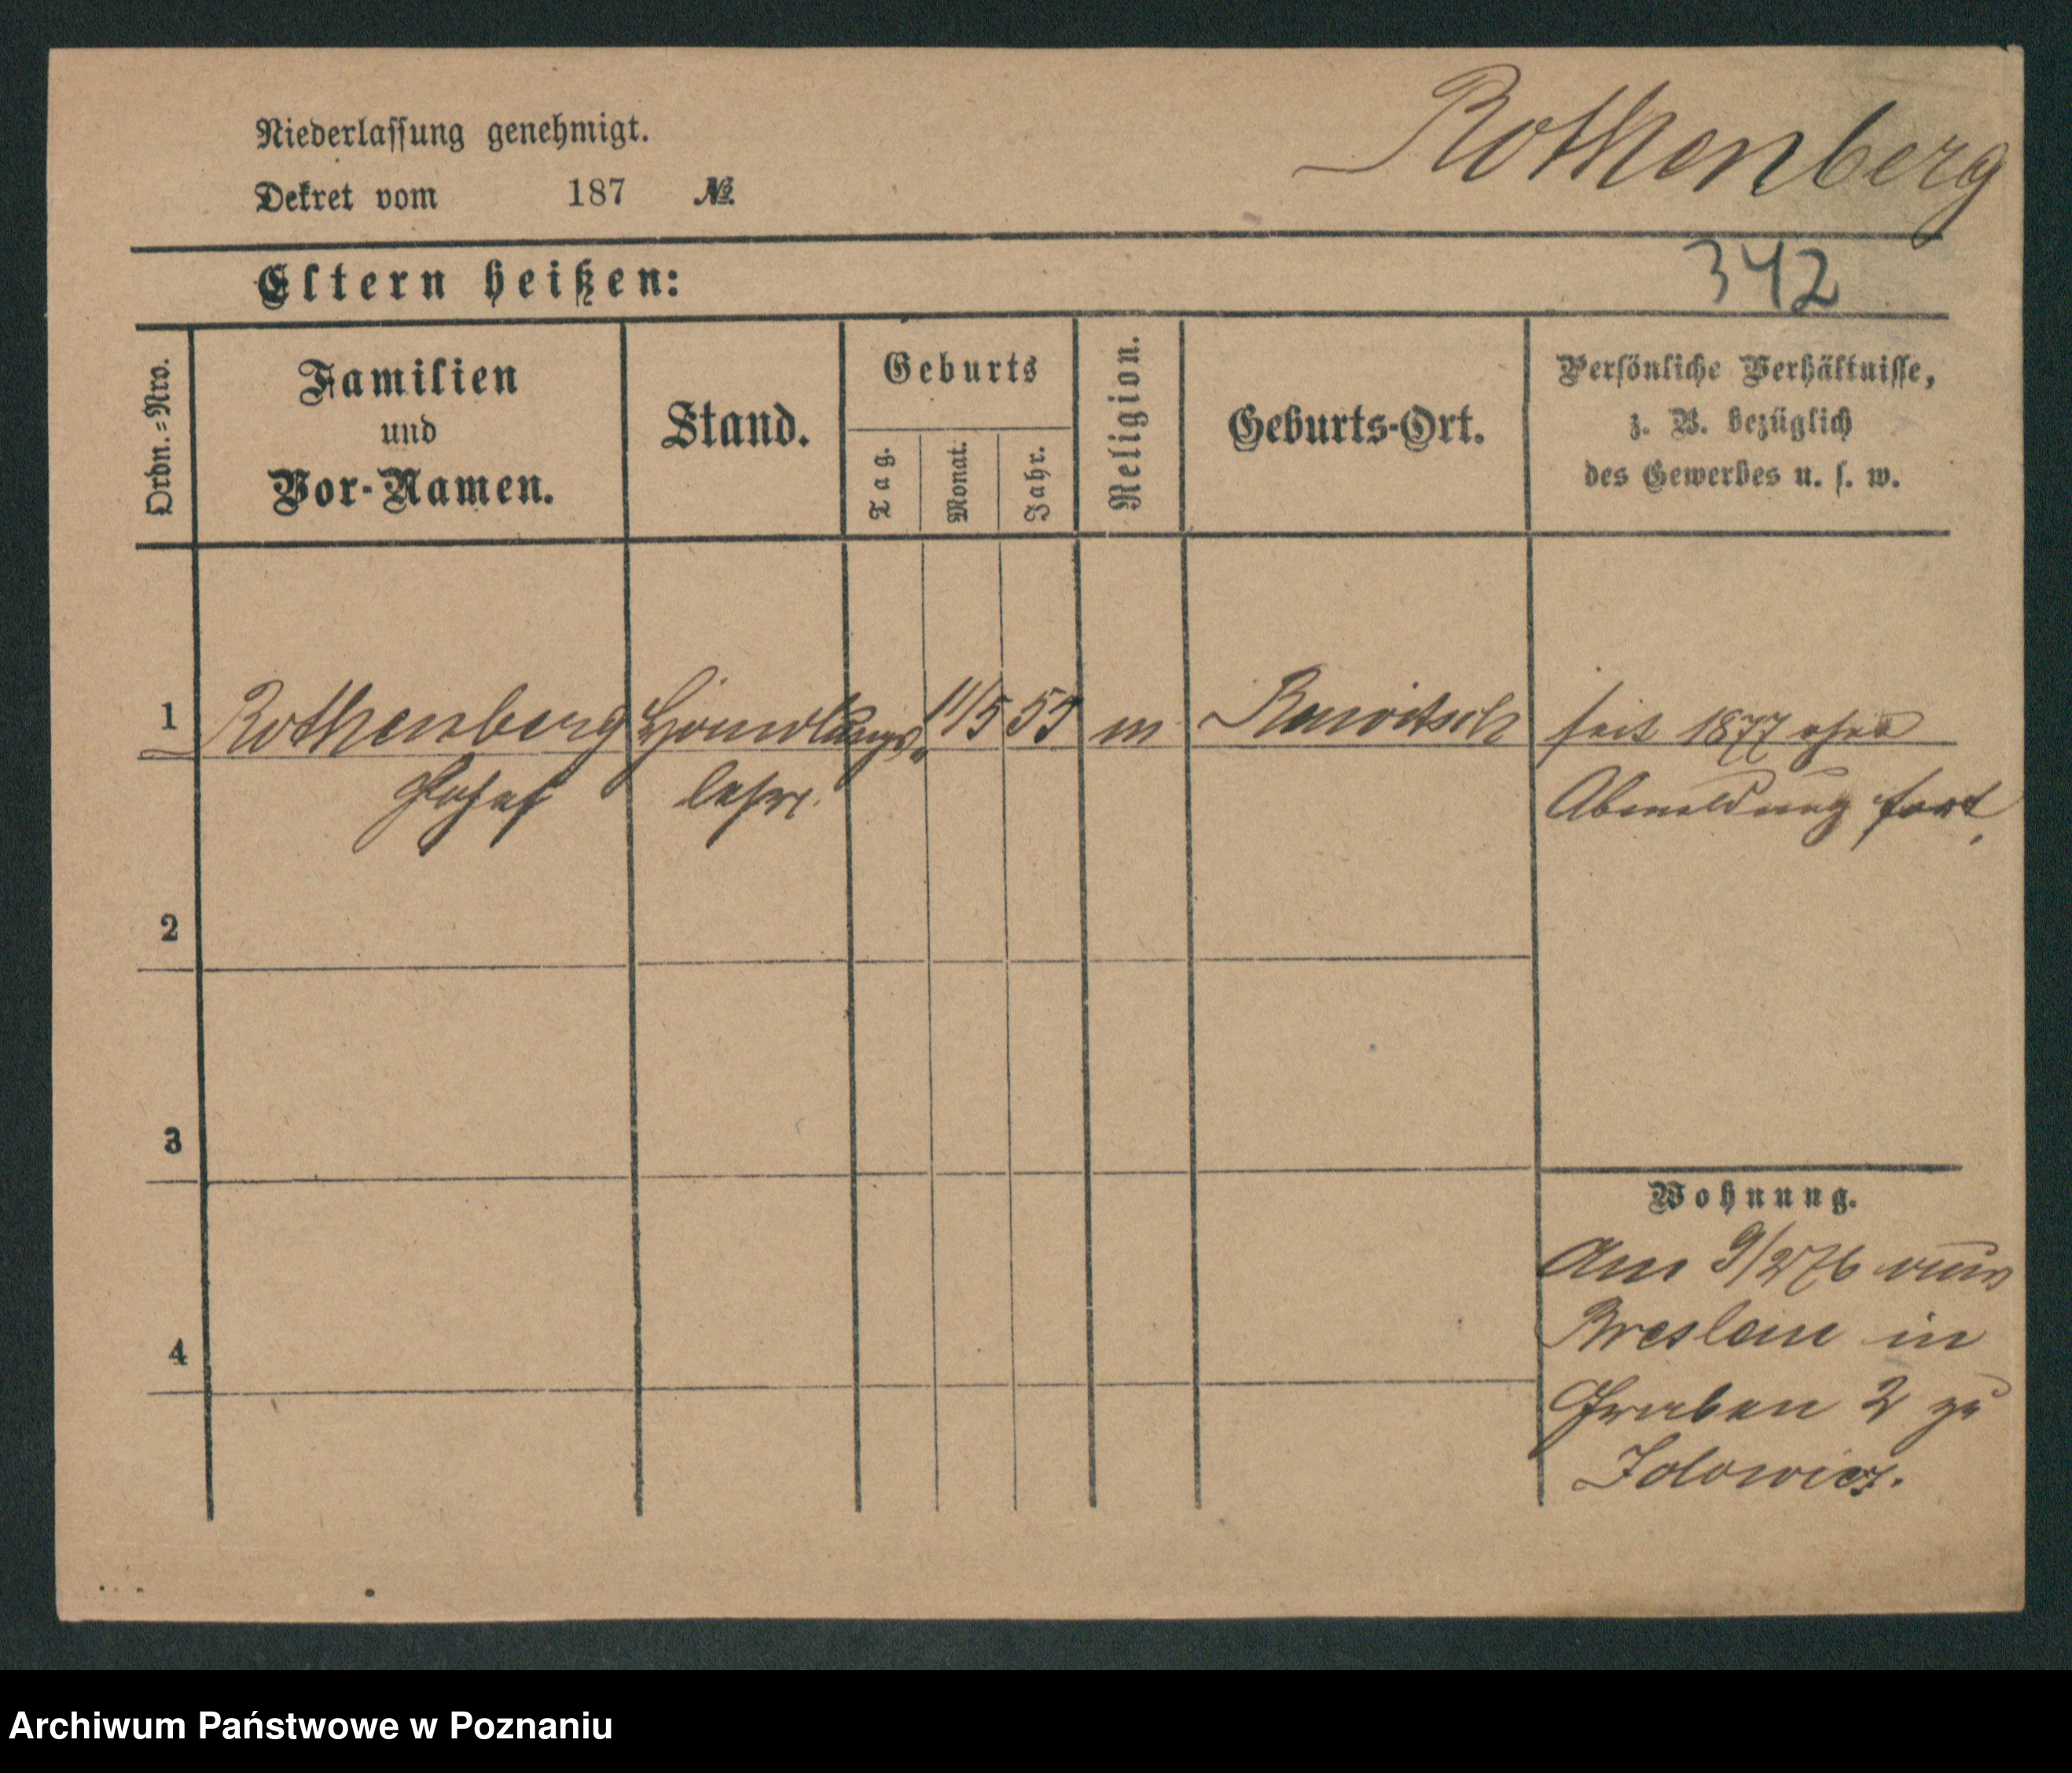 Niederlassung genehmigt.
Rothenberg
Dekret vom 187 №
Eltern heißen:
342
Ordn.=Nro.
Familien
und
Vor-Namen.
Stand.
Geburts
Tag.
Monat.
Jahr.
Religion.
Geburts-Ort.
Persönliche Verhältnisse,
z. B. bezüglich
des Gewerbes u. s. w.
1 Rothenberg Handlungs 11/5 55 m Rawitsch seit 1877 ohne
Josef lehrl. Abmeldung fort
2
3
Wohnung.
Am 9/2 76 aus
Breslau in
4
Graben 2 zu
Jolowicz.
Archiwum Państwowe w Poznaniu